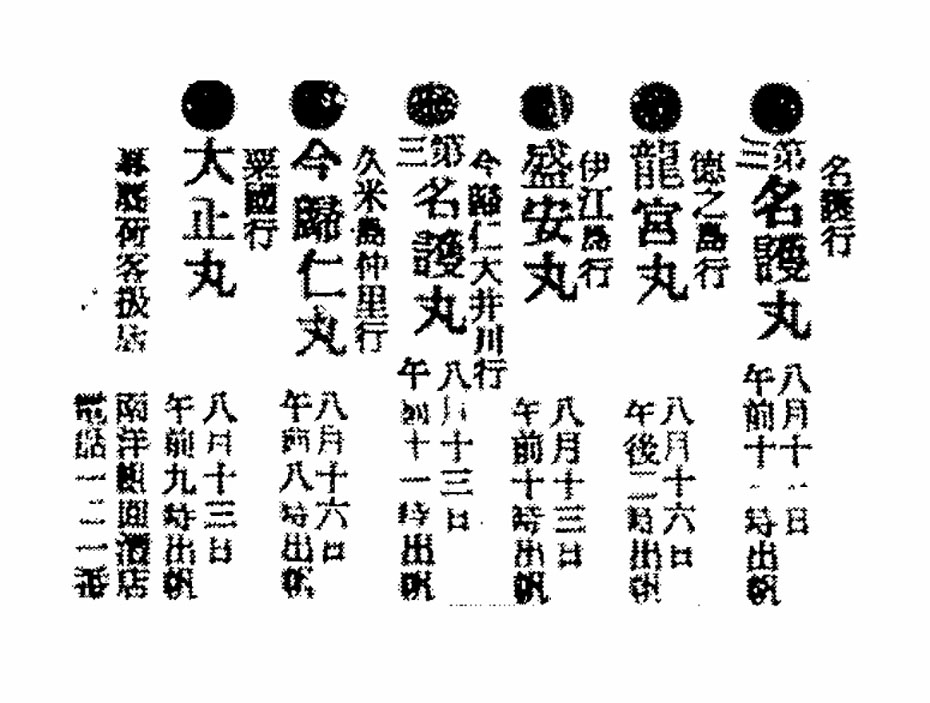 名護行
●第三名護丸
八月十一日
午前十一時出帆
德之島行
●龍宮丸
八月十六日
午後二時出帆
伊江島行
●盛安丸
八月十三日
午前十時出帆
今歸仁大井川行
●第三名護丸
八月十三日
午前十一時出帆
久米島仲里行
●今歸仁丸
八月十六日
午前八時出帆
粟國行
●大正丸
八月十三日
午前九時出帆
客扱店
南洋 酒店
電話一二一番